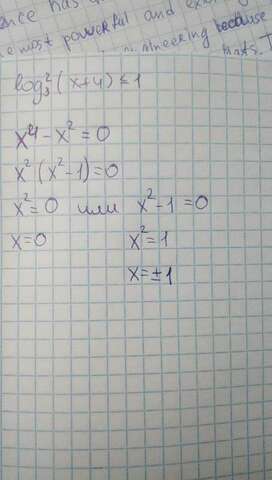 ance has
most powerful and
ineering because
log₃²(x+4) ≤ 1
x⁴ - x² = 0
x²(x²-1)=0
x²=0 или x²-1=0
x=0 x²=1
x=±1